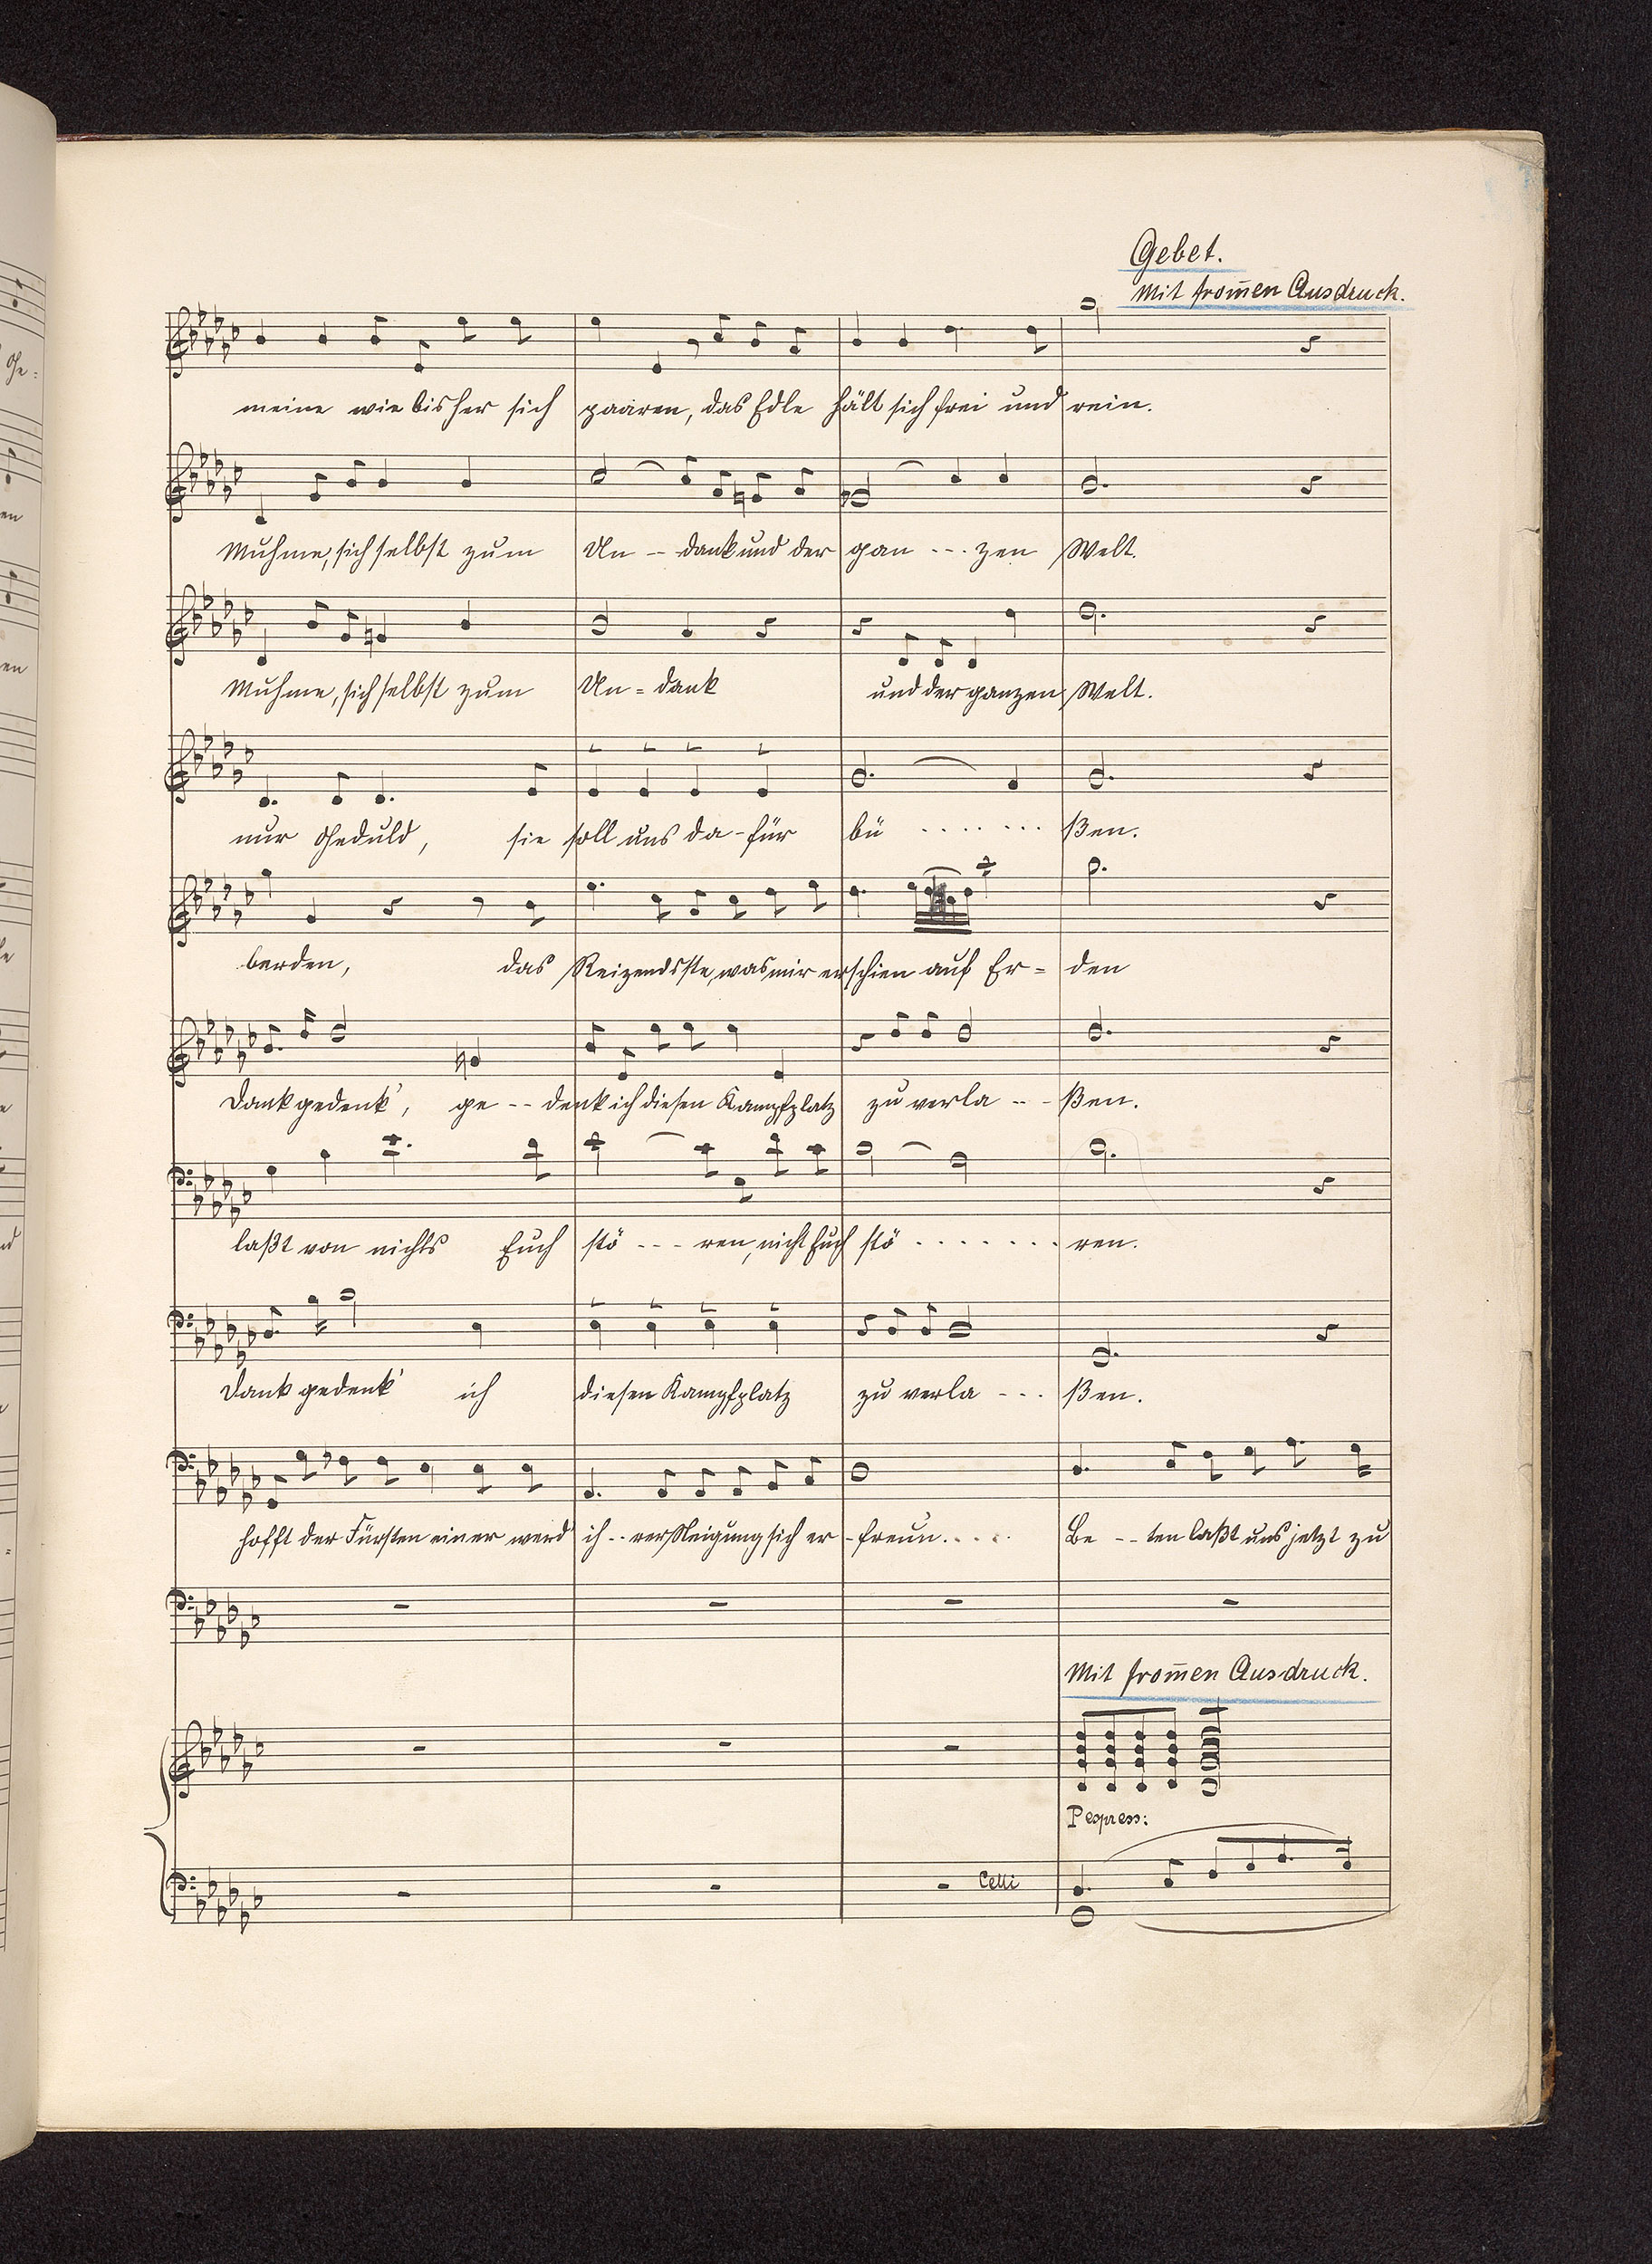 Gebet.
Mit from̄en Ausdruck.
meine wie bisher sich paaren, das Edle hält sich frei und rein.
Muhme, sich selbst zum Un -- dank und der gan --- zen Welt.
Muhme, sich selbst zum Un = dank und der ganzen Welt.
nur Geduld, sie soll uns da - für bü ....... ßen.
berden, das Reizendste, was mir erschien auf Er = den
Dank gedenk', ge -- denk ich diesen Kampfplatz zu verla --- ßen.
laßt von nichts Euch stö --- ren, nicht Euch stö ........ ren.
Dank gedenk' ich diesen Kampfplatz zu verla --- ßen.
hofft der Fürsten einer werd ich -- rer Neigung sich er - freun.....
Be -- ten laßt uns jetzt zu
Mit from̄en Ausdruck.
P espress:
Celli